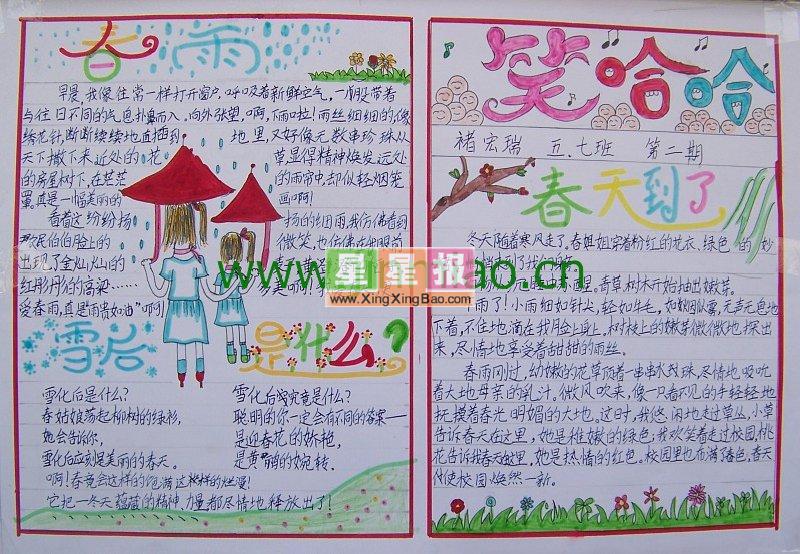 春雨
早晨,我像往常一样打开窗户,呼吸着新鲜空气,一股带着
与往日不同的气息扑鼻而入,向外张望,啊,下雨啦!雨丝细细的,像
绣花针,断断续续地直插到 地里,又好像无数串珍珠从
天下撒下来 近处的花 草显得精神焕发 远处
的房屋树下,在茫茫 的雨帘中,却似轻烟笼
罩。真是一幅美丽的 画啊!
看着这纷纷扬 扬的细雨,我仿佛看到
农民伯伯脸上的 微笑,也仿佛在
出现了金灿灿的
红彤彤的高粱……
受春雨,真是“雨贵如油”啊!
雪后是什么?
雪化后是什么?
春姑娘荡起柳树的绿衫,
她会告诉你,
雪化后应该是美丽的春天。
啊!春竟会这样的饱满 这样的烂漫!
它把一冬天蕴藏的精神、力量都尽情地释放出了!
雪化后究竟是什么?
聪明的你一定会有不同的答案——
是迎春花的娇艳,
是黄鹂的婉转。
笑哈哈
褚宏瑞 五.七班 第二期
春天到了
冬天随着寒风走了。春姐姐穿着粉红的花衣、绿色的
里。青草 树木开始抽出嫩芽。
下雨了!小雨细如针尖,轻如牛毛,如烟似雾,无声无息地
下着,不住地滴在我脸上身上。树枝上的嫩芽微微地探出
来,尽情地享受着甜甜的雨丝。
春雨刚过,幼嫩的花草顶着一串串水珠,尽情地吸吮
着大地母亲的乳汁。微风吹来,像一只看不见的手轻轻地
抚摸着春光明媚的大地。这时,我悠闲地走过草丛,小草
告诉春天在这里,她是稚嫩的绿色;我欢笑着走过校园,桃
花告诉我春天在这里,她是热情的红色。校园里也布满了春色,春天
使校园焕然一新。
星星报
www.XingXingBao.com